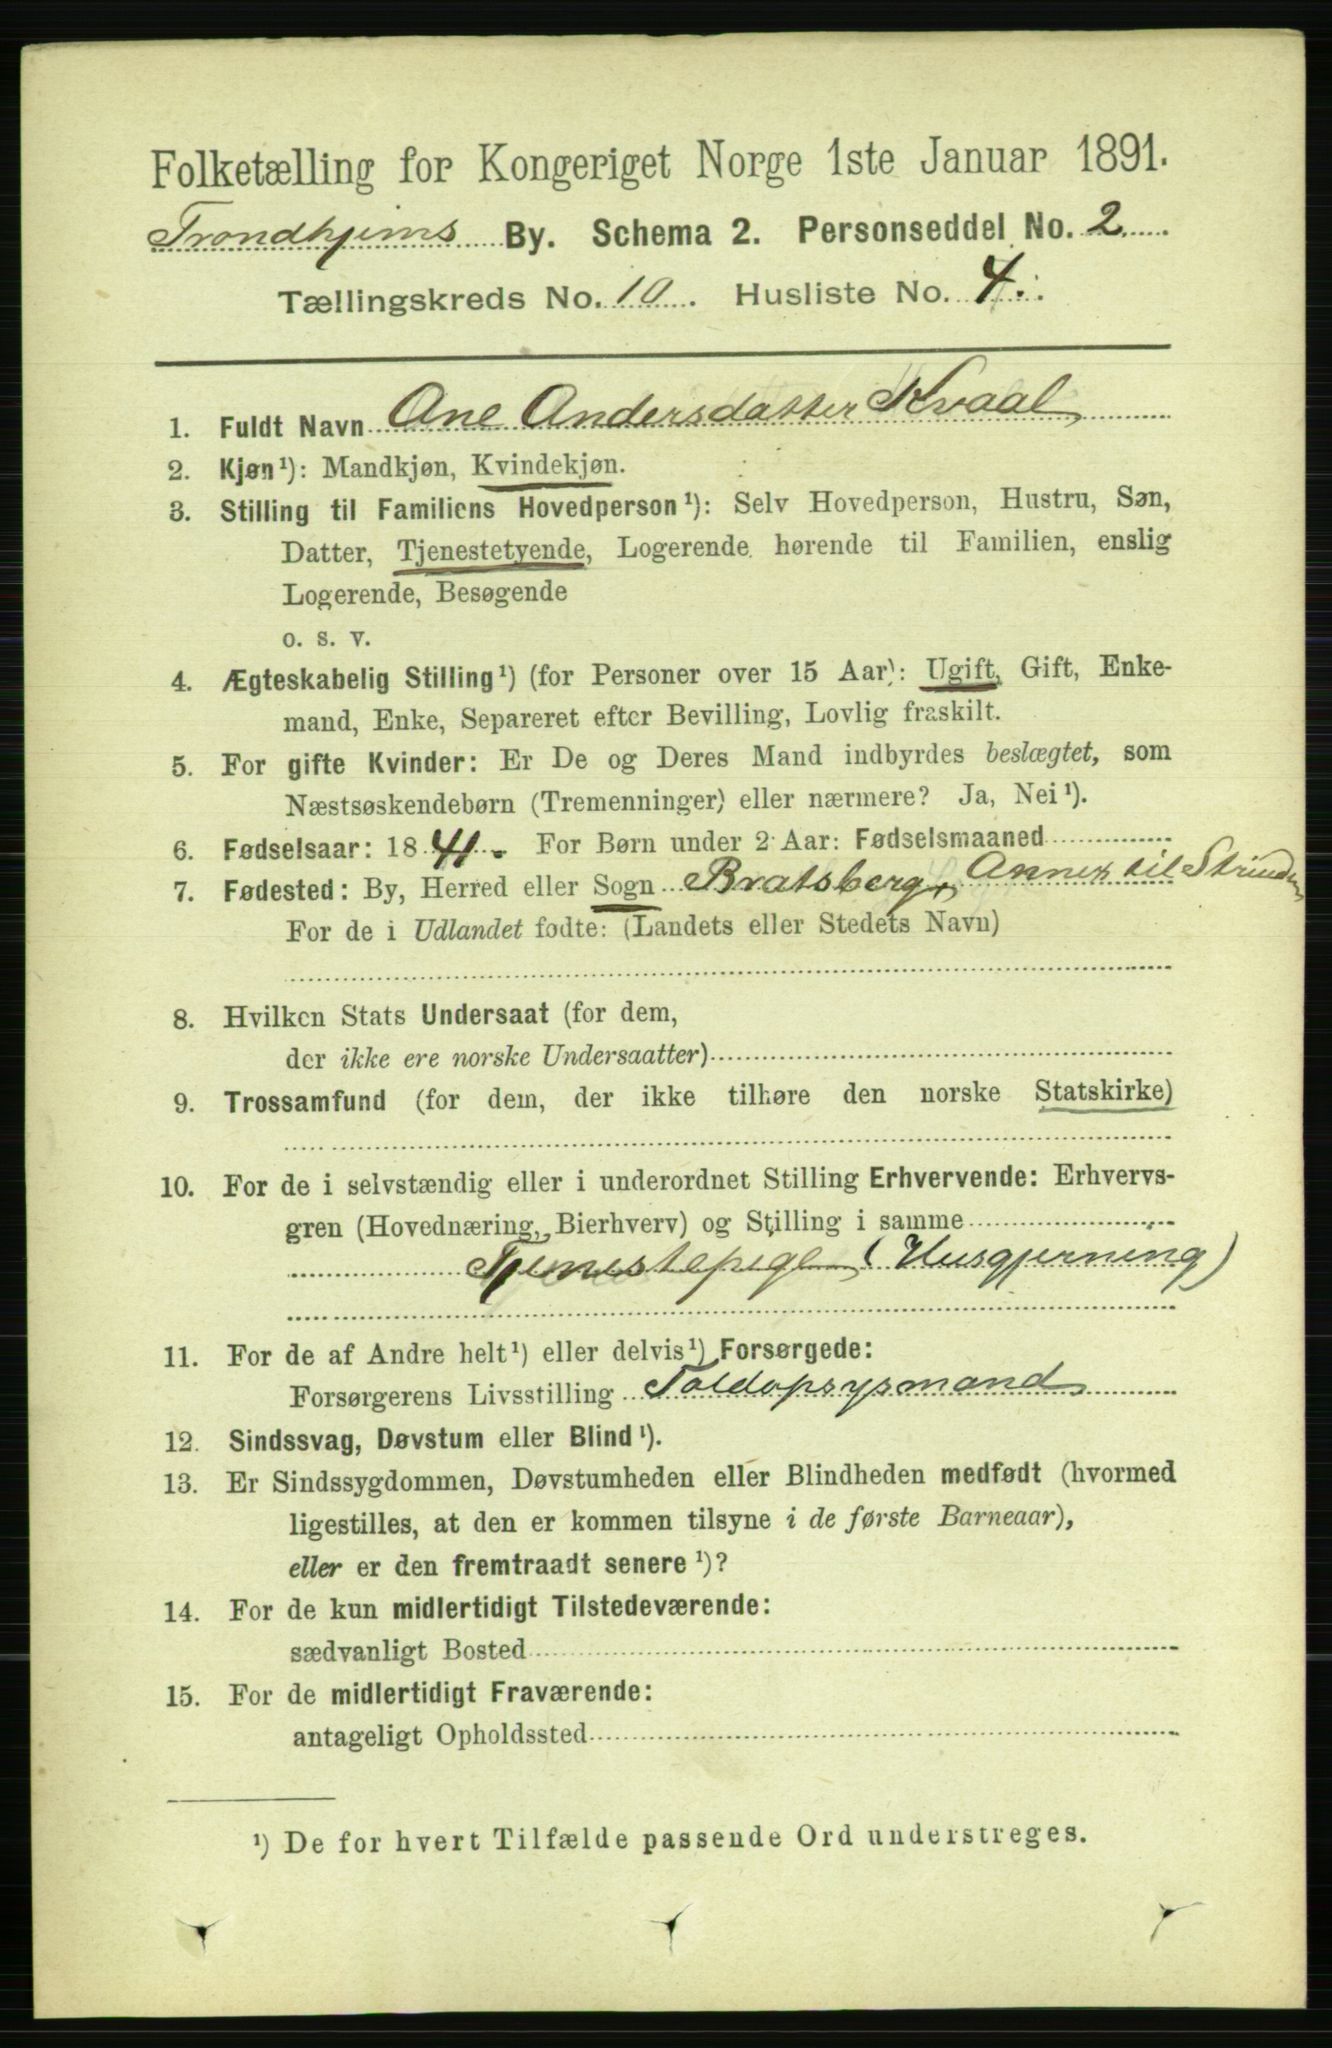 Folketælling for Kongeriget Norge 1ste Januar 1891.
Trondhjems By. Schema 2. Personseddel No. 2.
Tællingskreds No. 10. Husliste No. 4.
1. Fuldt Navn Ane Andersdatter Kvaal
2. Kjøn¹): Mandkjøn, Kvindekjøn.
3. Stilling til Familiens Hovedperson¹): Selv Hovedperson, Hustru, Søn,
Datter, Tjenestetyende, Logerende hørende til Familien, enslig
Logerende, Besøgende
o. s. v.
4. Ægteskabelig Stilling¹) (for Personer over 15 Aar): Ugift, Gift, Enke-
mand, Enke, Separeret efter Bevilling, Lovlig fraskilt.
5. For gifte Kvinder: Er De og Deres Mand indbyrdes beslægtet, som
Næstsøskendebørn (Tremenninger) eller nærmere? Ja, Nei¹).
6. Fødselsaar: 1841. For Børn under 2 Aar: Fødselsmaaned
7. Fødested: By, Herred eller Sogn Bratsberg, Annex til Strinden
For de i Udlandet fødte: (Landets eller Stedets Navn)
8. Hvilken Stats Undersaat (for dem,
der ikke ere norske Undersaatter)
9. Trossamfund (for dem, der ikke tilhøre den norske Statskirke)
10. For de i selvstændig eller i underordnet Stilling Erhvervende: Erhvervs-
gren (Hovednæring, Bierhverv) og Stilling i samme
Tjenestepige (Husgjerning)
11. For de af Andre helt¹) eller delvis¹) Forsørgede:
Forsørgerens Livsstilling Toldopsysmand
12. Sindssvag, Døvstum eller Blind¹).
13. Er Sindssygdommen, Døvstumheden eller Blindheden medfødt (hvormed
ligestilles, at den er kommen tilsyne i de første Barneaar),
eller er den fremtraadt senere¹)?
14. For de kun midlertidigt Tilstedeværende:
sædvanligt Bosted
15. For de midlertidigt Fraværende:
antageligt Opholdssted
¹) De for hvert Tilfælde passende Ord understreges.